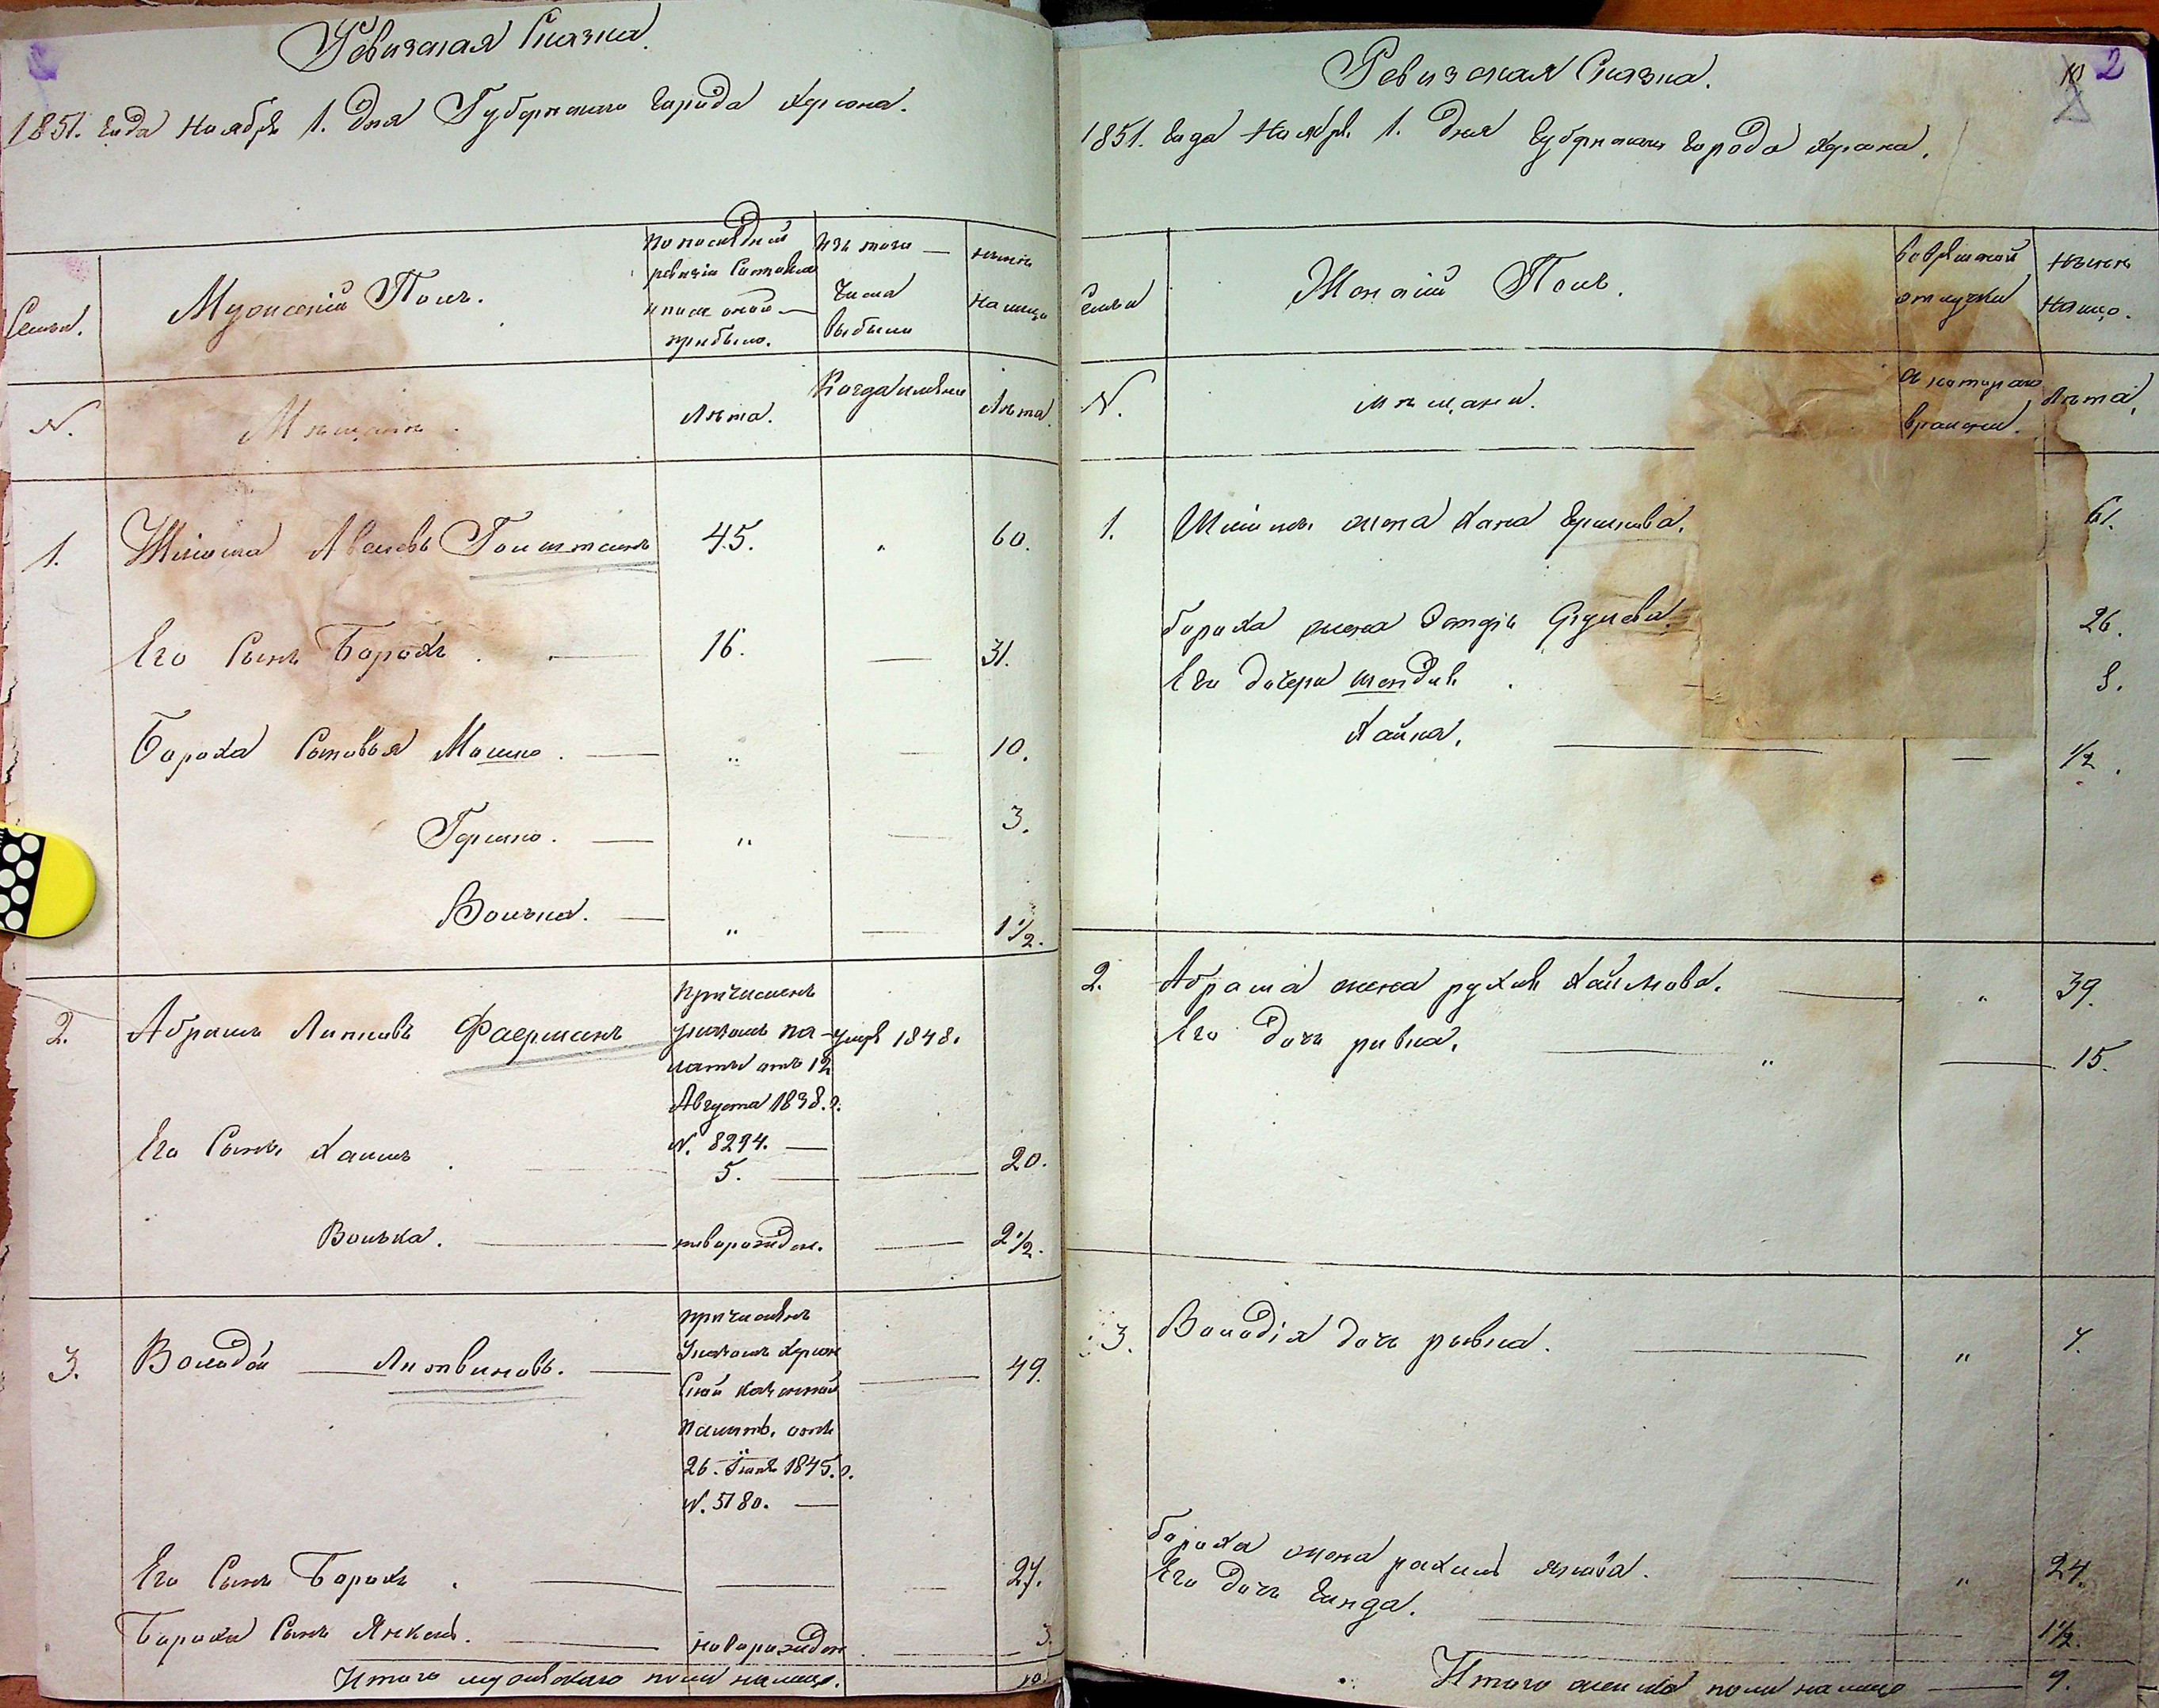 Ревизская Сказка
1851. Года Ноября 1. Дня Губернскаго Города Херсона.
Семьи.
Мужескій Полъ.
По последней
ревизіи Состояло
и после оной
прибыло.
Изъ того
Числа
выбыло
ныне
на лицо
N.
Мещане.
Лета.
Когда именно
Лета
1.
45.
"
60.
Его Сынъ Борохъ.
16.
31.
Бороха Сыновья Мошко.
"
10.
Гершко.
"
3.
Волька.
"
1 1/2.
2.
Абрамъ Липковъ Фаерманъ
Причисленъ
указомъ па-
латы отъ 12
Августа 1838. г.
N. 8294.
умре 1848.
Его Сынъ Хаимъ
5.
20.
Волька.
новорожден.
2 1/2.
3.
Володой Литвиновъ.
причисленъ
Указомъ Херсон
Ской казенной
Палаты, отъ
26. Іюня 1845. г.
N. 5180.
49.
Его Сынъ Борохъ.
27.
Бороха Сынъ Янкель.
новорожден
3.
Итого мужескаго пола на лицо.
10.
2
Ревизская Сказка.
1851. Года Ноября 1. Дня Губернскаго Города Херсона.
Семьи
Женскій Полъ.
Во временной
отлучке
ныне
на лицо.
N.
мещане.
с котораго
времени.
Лета,
1.
жена Хана
61.
Бороха жена Эстеръ
26.
Его дочери Шендля
8.
Хайка.
1/2.
2.
Абрама жена рухля Хаимова.
"
39.
Его дочь ривка.
"
15.
3.
Володія дочь ривка.
"
7.
Бороха жена рахиль
"
24.
Его дочь Гинда.
1 1/2.
Итого женска пола на лицо
9.